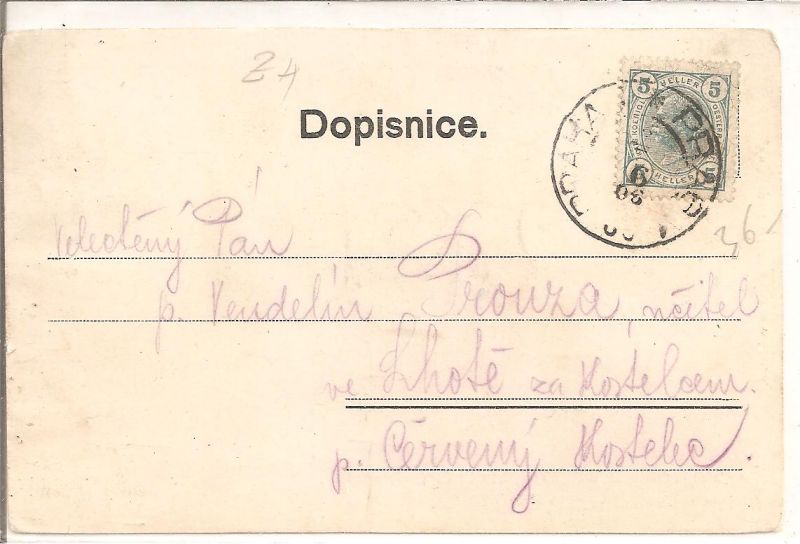 24
Dopisnice.
5 HELLER 5
HELLER
PRAHA PRAG
6
06
36
Velectěný Pán
p. Vendelín Prouza, učitel
ve Lhotě za Kostelcem.
p. Červený Kostelec.